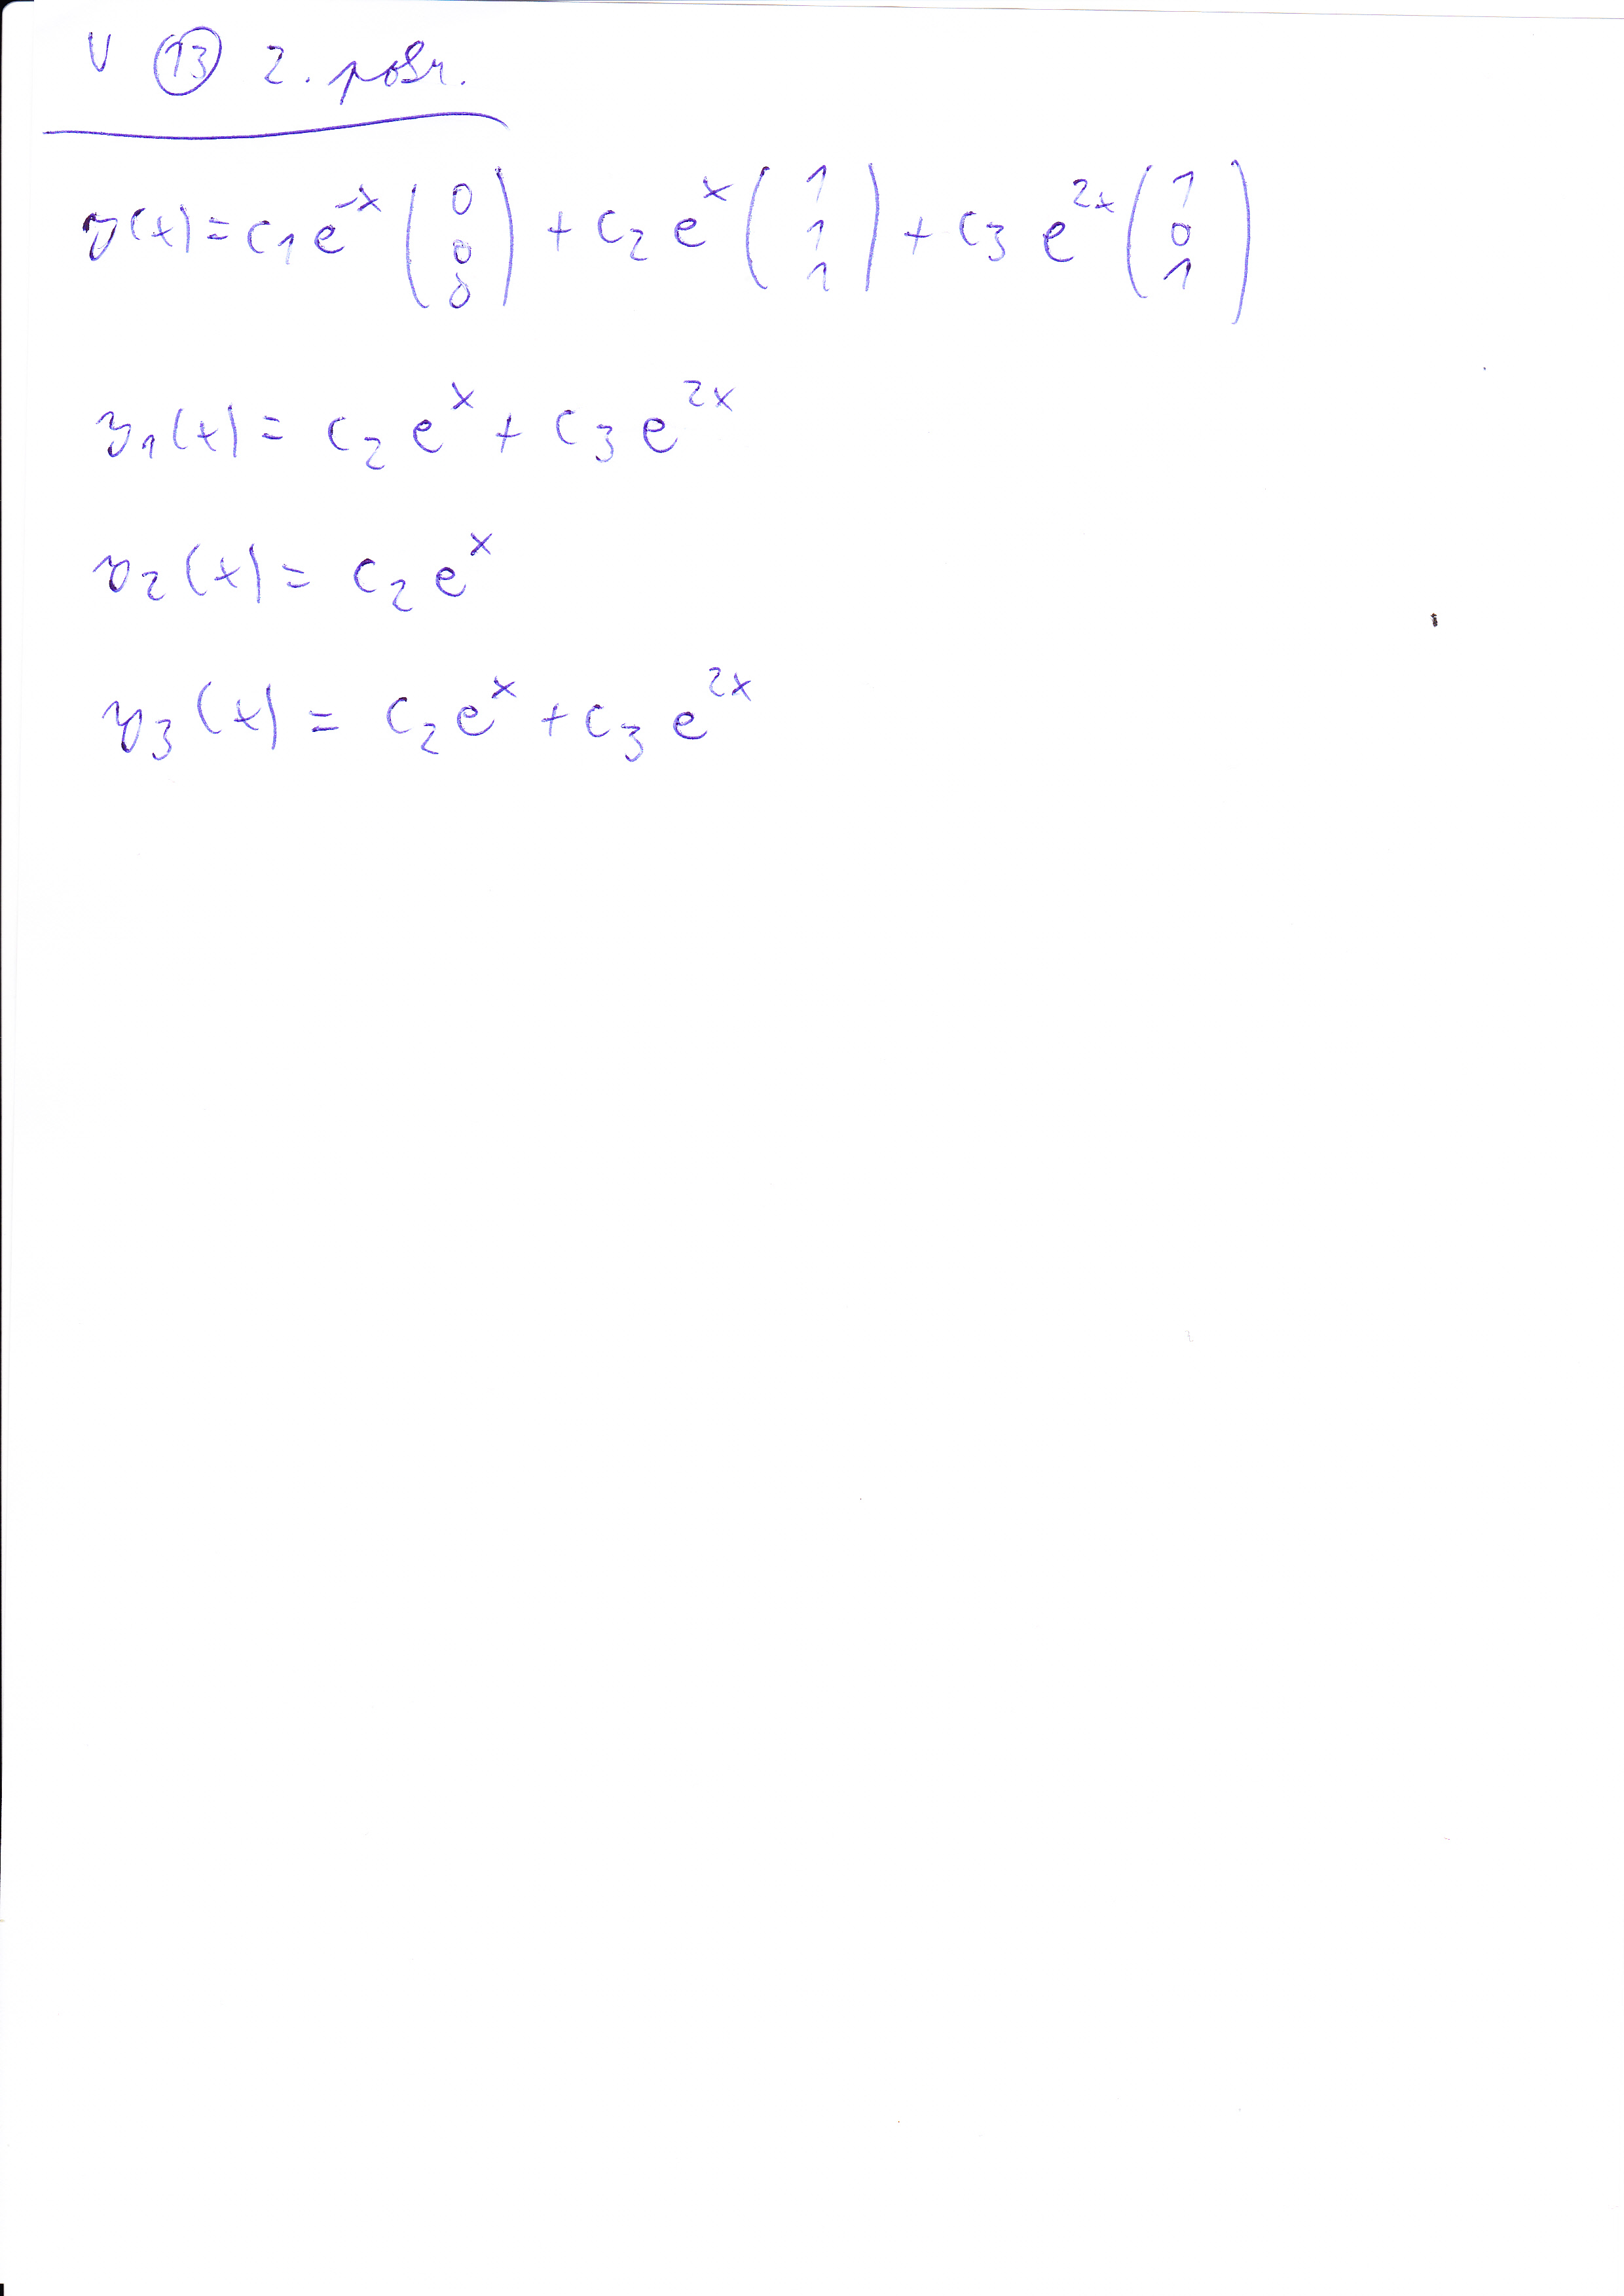 V 13 2. pokr.
y(x) = c1 e^-x (0 0 0) + c2 e^x (1 1 1) + c3 e^2x (1 0 1)
y1(x) = c2 e^x + c3 e^2x
y2(x) = c2 e^x
y3(x) = c2 e^x + c3 e^2x